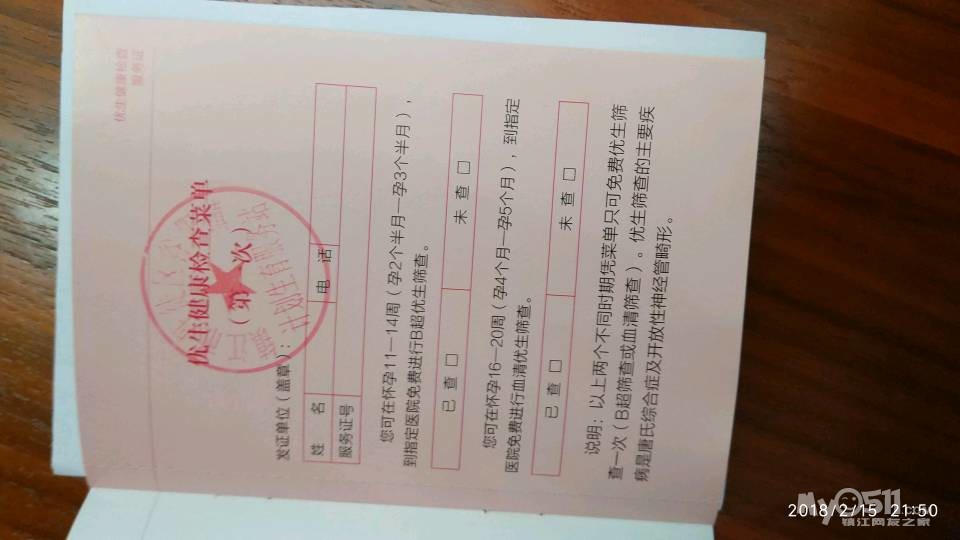 优生健康检查
服务证
优生健康检查菜单
（第一次）
发证单位（盖章）：
计划生育服务站
姓 名 电 话
服务证号
您可在怀孕11—14周（孕2个半月—孕3个半月），
到指定医院免费进行B超优生筛查。
已 查 □ 未 查 □
您可在怀孕16—20周（孕4个月—孕5个月），到指定
医院免费进行血清优生筛查。
已 查 □ 未 查 □
说明：以上两个不同时期凭菜单只可免费优生筛
查一次（B超筛查或血清筛查）。优生筛查的主要疾
病是唐氏综合症及开放性神经管畸形。
My0511
镇江网友之家
2018/2/15 21:50